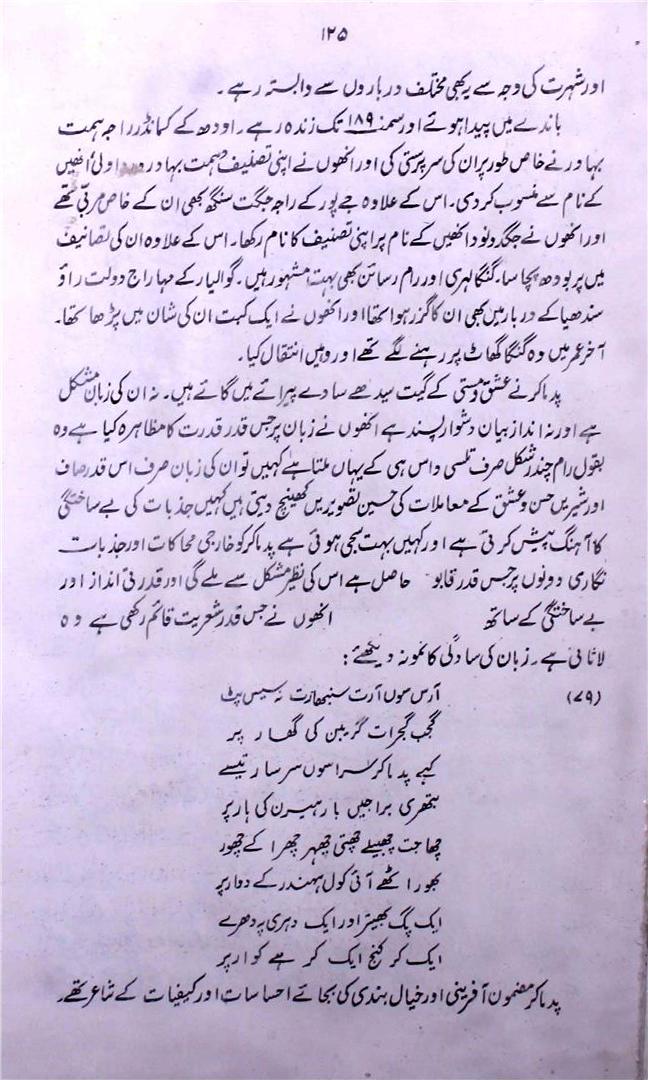 ۱۲۵
اور شہرت کی وجہ سے یہ بھی مختلف درباروں سے وابستہ رہے۔
باندے میں پیدا ہوئے اور سمنہ ۱۸۹ تک زندہ رہے۔ اودھ کے کمانڈر راجہ ہمت
بہادر نے خاص طور پر ان کی سرپرستی کی اور انھوں نے اپنی تصنیف ہمت بہادر اولی انھیں
کے نام سے منسوب کر دی۔ اس کے علاوہ جے پور کے راجہ جگت سنگھ بھی ان کے خاص مربّی تھے
اور انھوں نے جگد ونود انھیں کے نام پر اپنی تصنیف کا نام رکھا۔ اس کے علاوہ ان کی تصانیف
میں پربودھ پچاسا۔ گنگا لہری اور رام رسائن بھی بہت مشہور ہیں۔ گوالیار کے مہاراج دولت راؤ
سندھیا کے دربار میں بھی ان کا گزر ہوا تھا اور انھوں نے ایک کبت ان کی شان میں پڑھا تھا۔
آخر عمر میں وہ گنگا گھاٹ پر رہنے لگے تھے اور وہیں انتقال کیا۔
پدماکر نے عشق و مستی کے گیت سیدھے سادے پیرائے میں گائے ہیں۔ نہ ان کی زبان مشکل
ہے اور نہ انداز بیان دشوار پسند ہے انھوں نے زبان پر جس قدر قدرت کا مظاہرہ کیا ہے وہ
بقول رام چندر شکل صرف تلسی داس ہی کے یہاں ملتا ہے کہیں تو ان کی زبان صرف اس قدر صاف
اور شیریں حسن و عشق کے معاملات کی حسین تصویریں کھینچ دیتی ہیں کہیں جذبات کی بے ساختگی
کا آہنگ پیش کرتی ہے اور کہیں بہت سجی ہوئی ہے پدماکر کو خارجی محاکات اور جذبات
نگاری دونوں پر جس قدر قابو حاصل ہے اس کی نظیر مشکل سے ملے گی اور قدرتی انداز اور
بے ساختگی کے ساتھ انھوں نے جس قدر شعریت قائم رکھی ہے وہ
لاثانی ہے۔ زبان کی سادگی کا نمونہ دیکھئے:
(۷۹) آرس سوں آرت سنبھارت نہ سیس پٹ
گجب گجرات گریبن کی دھار پر
کہے پدماکر سرا سوں سرسار تیسے
بتھری براجیں بار ہیرن کی ہار پر
چھاجت چھبیلے چھتی چھہر چھرا کے چھور
بھور اٹھے آئی کول مندر کے دوار پر
ایک پگ بھیتر اور ایک دہری پہ دھرے
ایک کر کنج ایک کر ہے کوار پر
پدماکر مضمون آفرینی اور خیال بندی کی بجائے احساسات اور کیفیات کے شاعر تھے۔